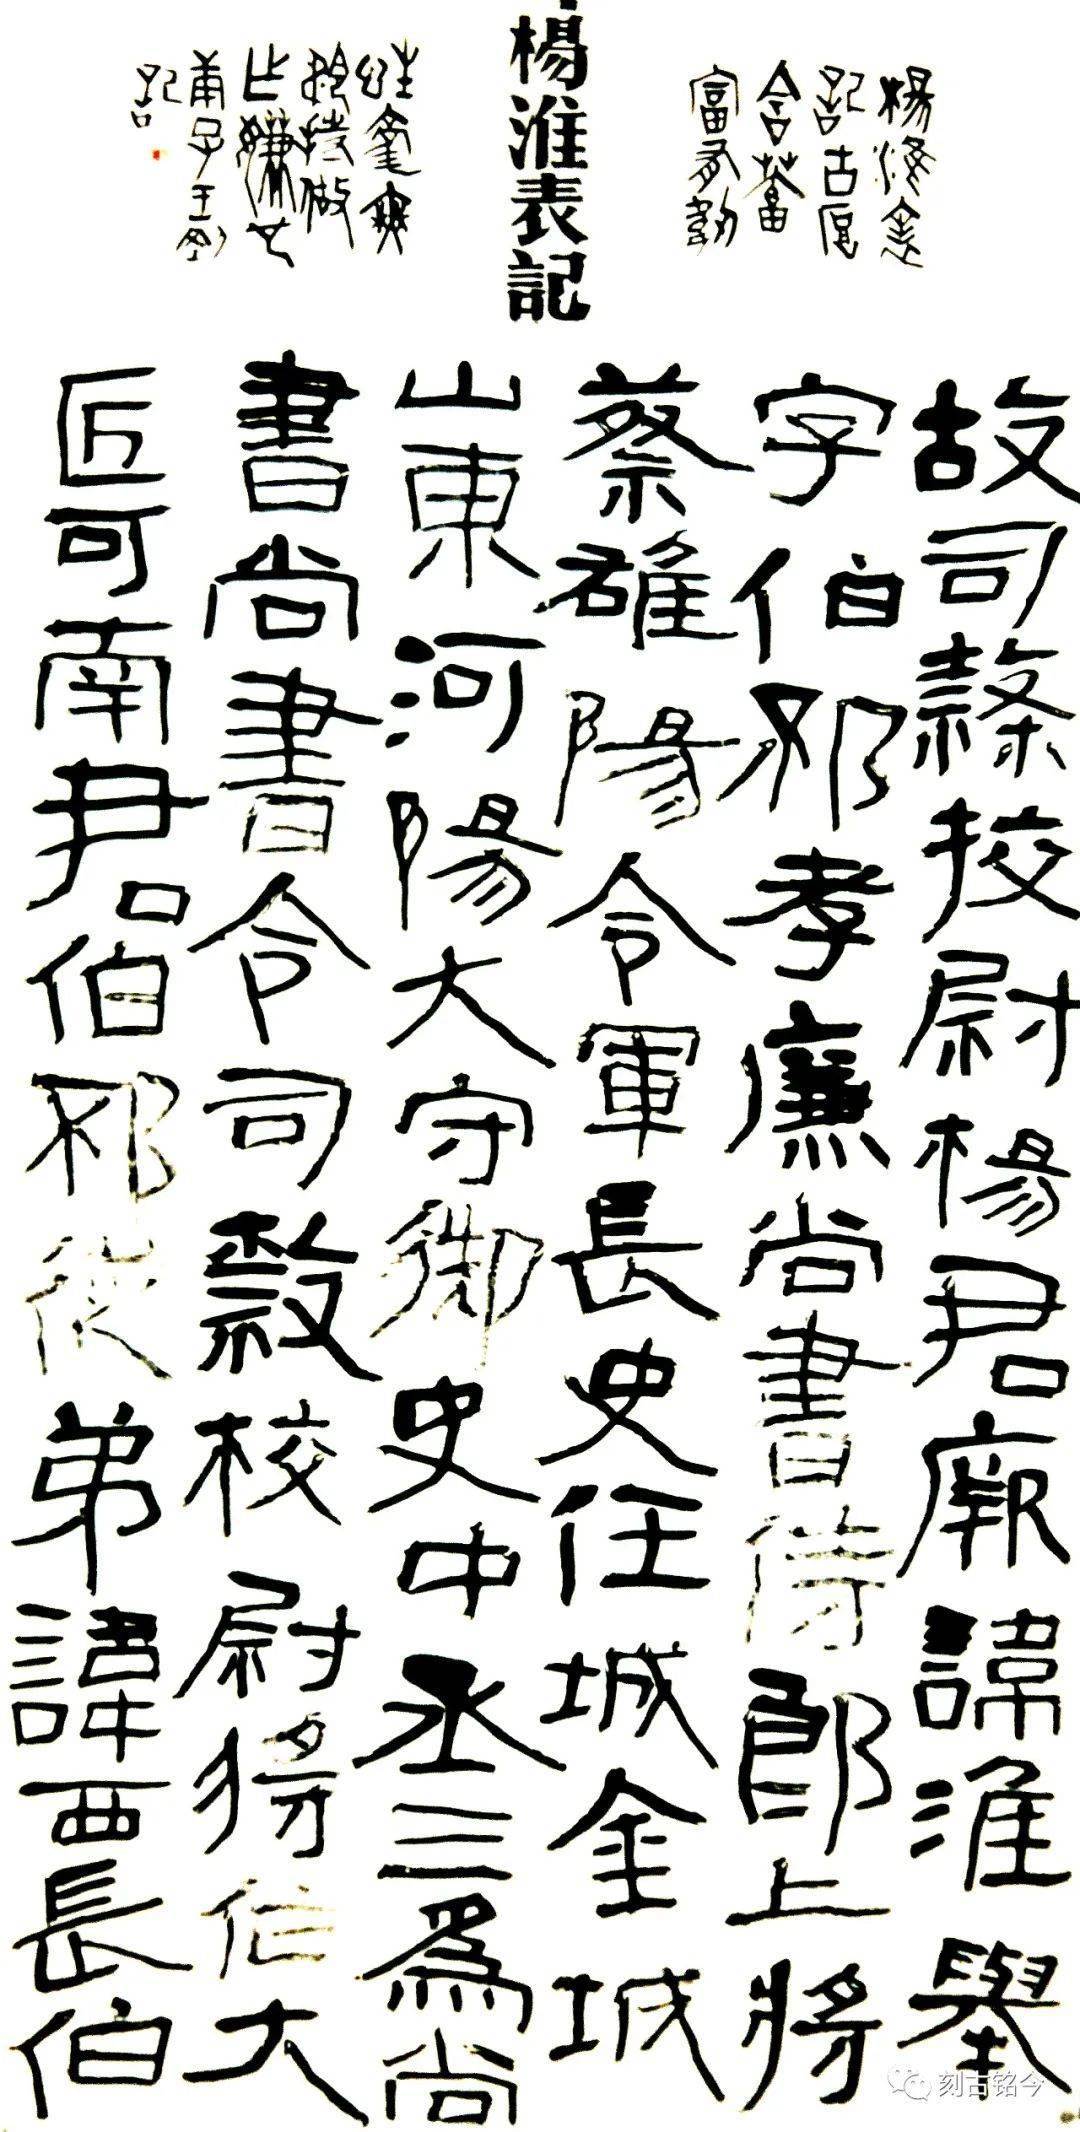 楊淮表記
楊淮表
記古厚
含蓄
富有
故司隸挍尉楊君厥諱淮舉
字伯邳孝廉尚書侍郎上將
蔡雒陽令軍長史任城金城
山東河陽大守御史中丞三為尚
書尚書令司隸校尉將作大
匠可南君伯邳從弟諱西長伯
刻古铭今